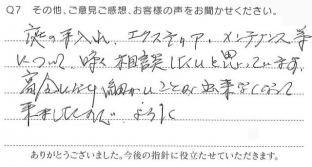 Q7 その他、ご意見ご感想、お客様の声をお聞かせください。
庭の手入れ、エクステリア、メンテナンス等
について、時々相談したいと思っています。
高令になり細かいことが出来なくなって
来ましたので よろしく
ありがとうございました。今後の指針に役立たせていただきます。